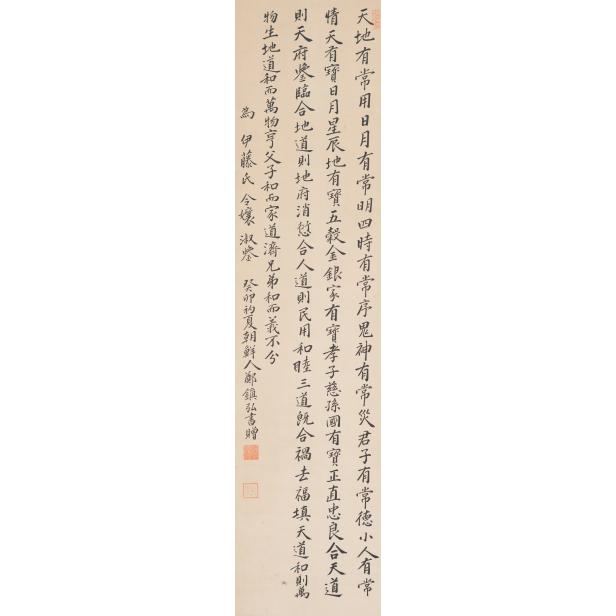 天地有常用日月有常明四時有常序鬼神有常災君子有常德小人有常
情天有寶日月星辰地有寶五穀金銀家有寶孝子慈孫國有寶正直忠良合天道
則天府鑒臨合地道則地府消愆合人道則民用和睦三道旣合禍去福填天道和則萬
物生地道和而萬物亨父子和而家道濟兄弟和而義不分
為伊藤氏令孃淑鑒
癸卯礿夏朝鮮人鄭鎮弘書贈